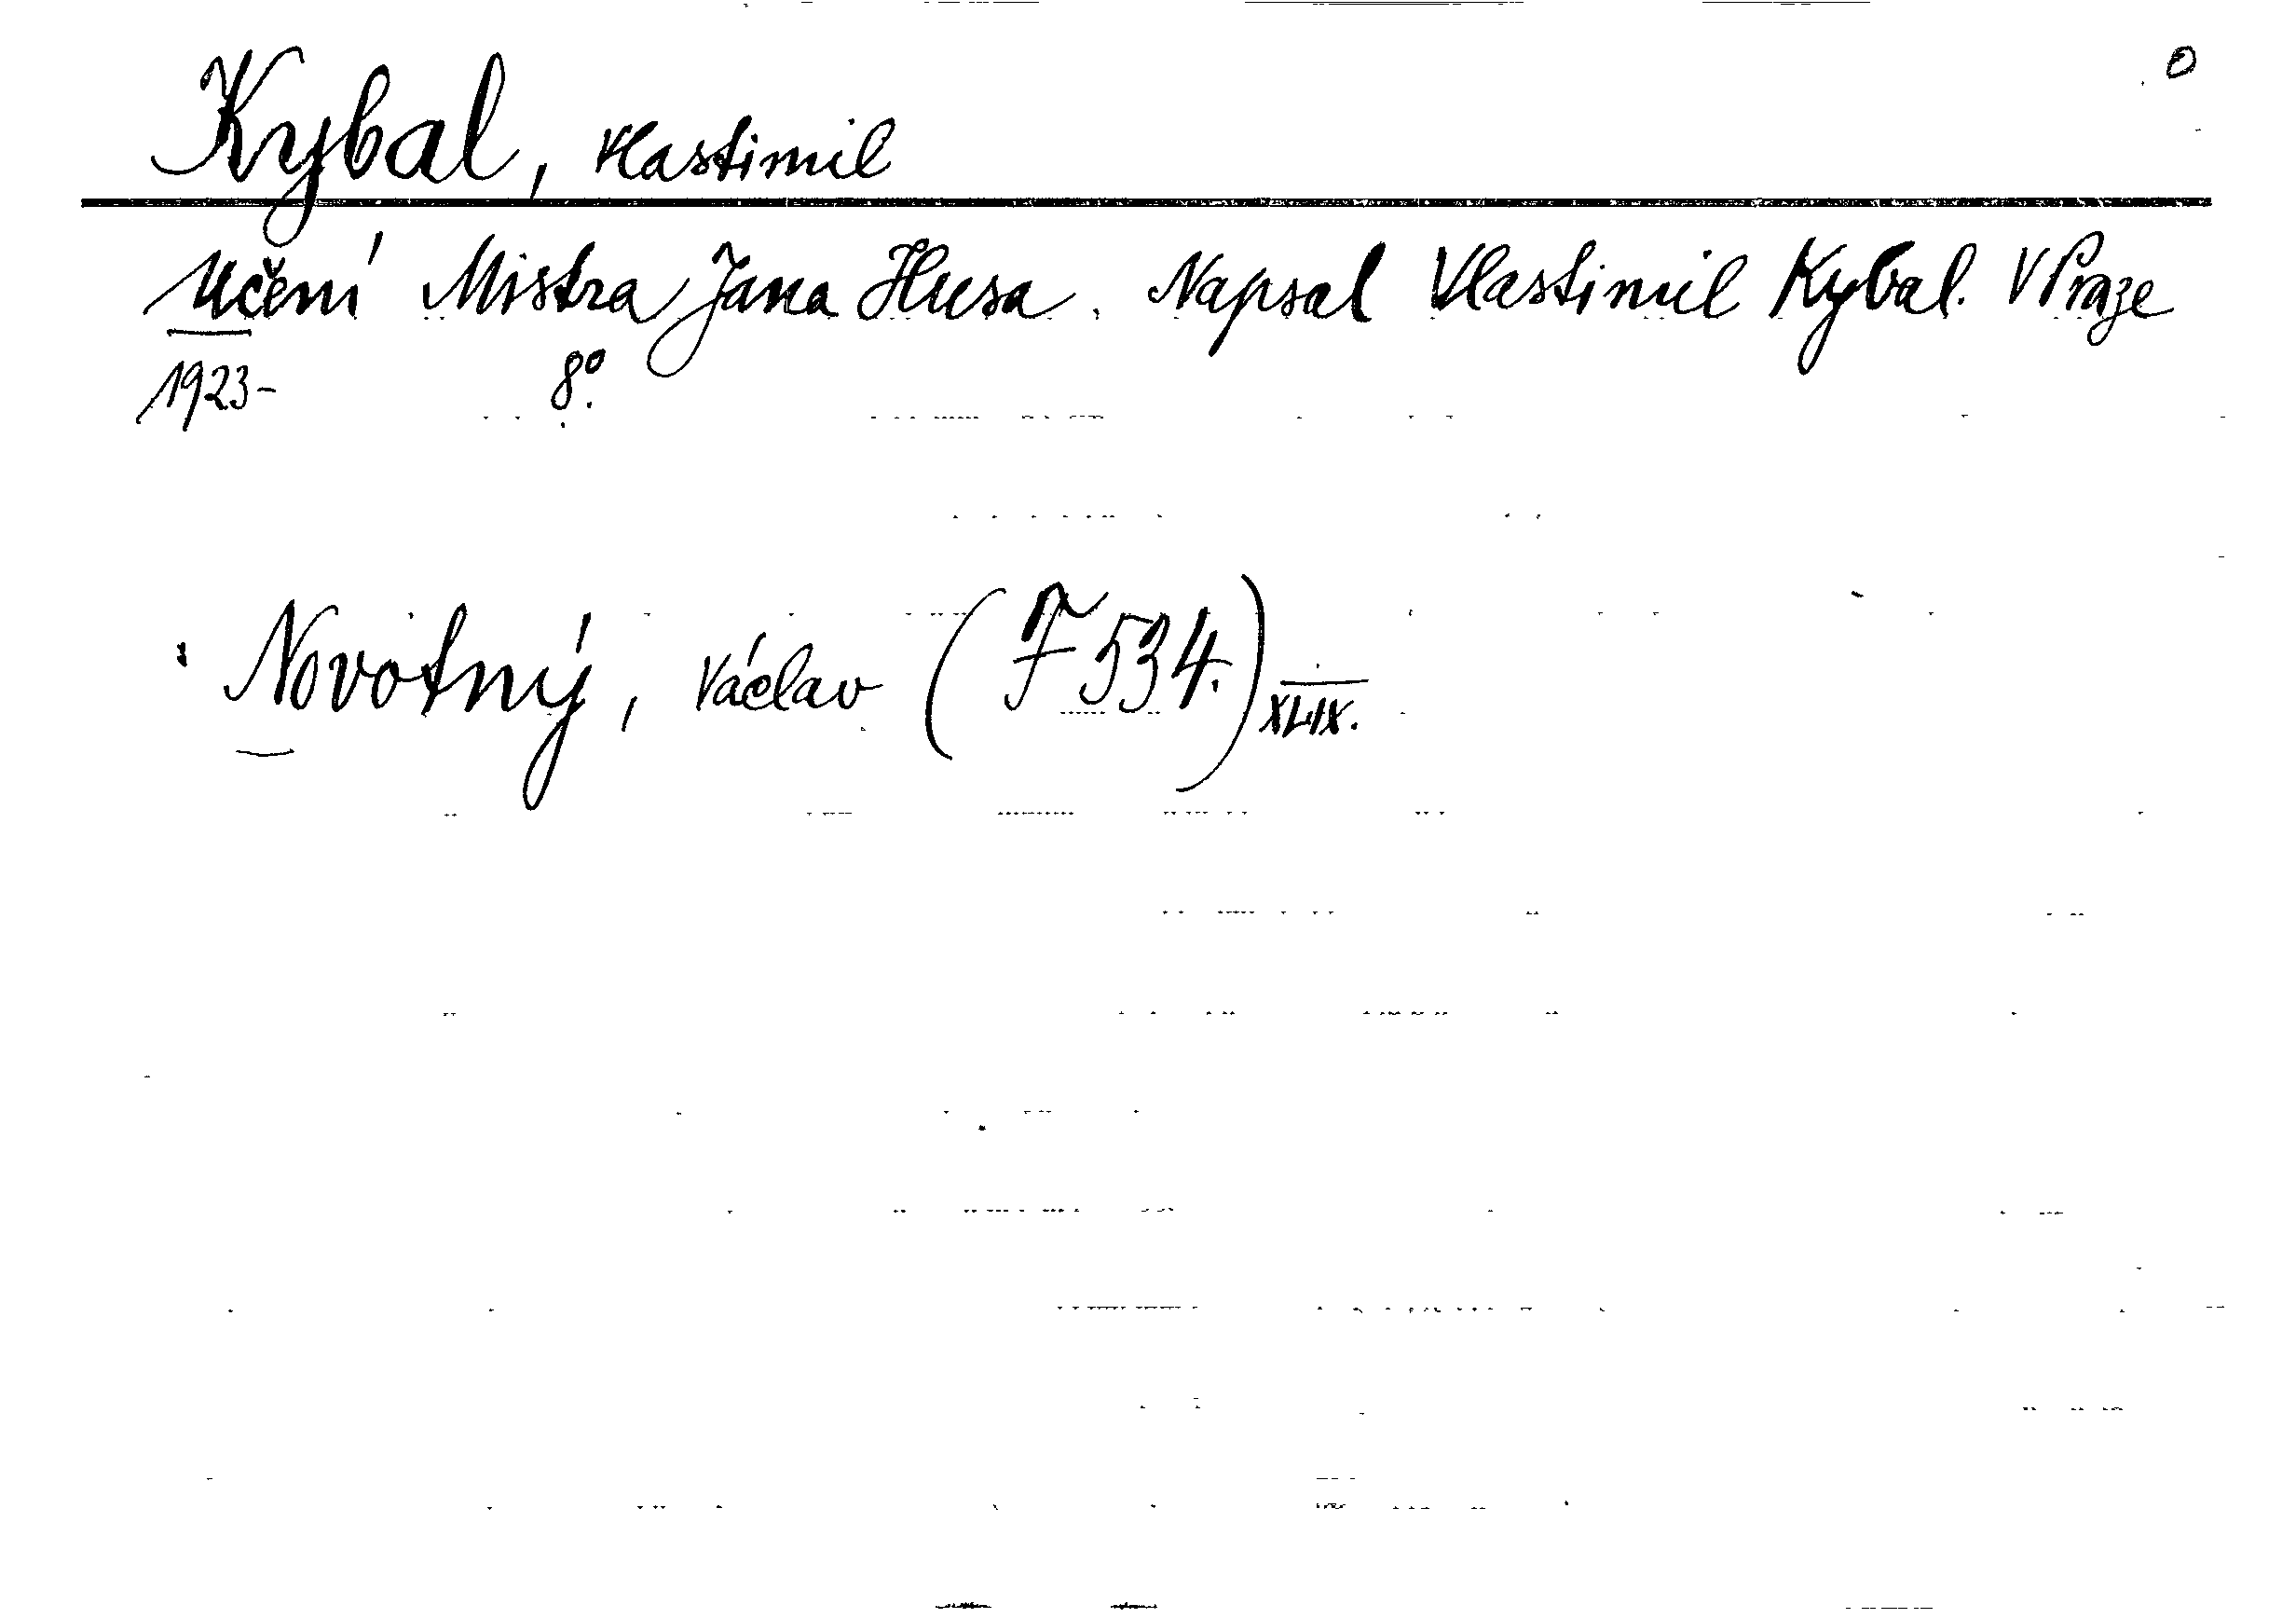 Kybal, Vlastimil
Učení Mistra Jana Husa. Napsal Vlastimil Kybal. V Praze
1923- 8º.
Novotný, Václav (F 534.) XLIX.